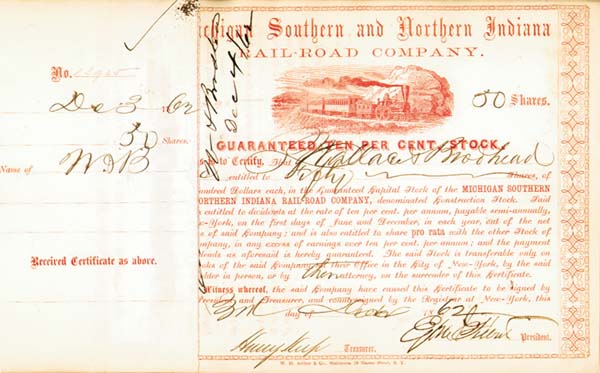 Michigan Southern and Northern Indiana
RAIL-ROAD COMPANY.
No.
Dec 3 1862
50 Shares.
Name of W & B
Received Certificate as above.
Dec 4/62
50 Shares.
GUARANTEED TEN PER CENT. STOCK.
is to Certify, That Wallace & Brodhead
entitled to Fifty Shares, of
undred Dollars each, in the Guaranteed Capital Stock of the MICHIGAN SOUTHERN
NORTHERN INDIANA RAIL-ROAD COMPANY, denominated Construction Stock. Said
is entitled to dividends at the rate of ten per cent. per annum, payable semi-annually,
New-York, on the first days of June and December, in each year, out of the net
of said Company; and is also entitled to share pro rata with the other Stock of
ompany, in any excess of earnings over ten per cent. per annum; and the payment
dends as aforesaid is hereby guaranteed. The said Stock is transferable only on
oks of the said Company, at their Office in the City of New-York, by the said
older in person, or by their attorney, on the surrender of this Certificate.
Witness whereof, the said Company have caused this Certificate to be signed by
President and Treasurer, and countersigned by the Registrar at New-York, this
3rd day of Dec 1862.
Henry Keep Treasurer. President.